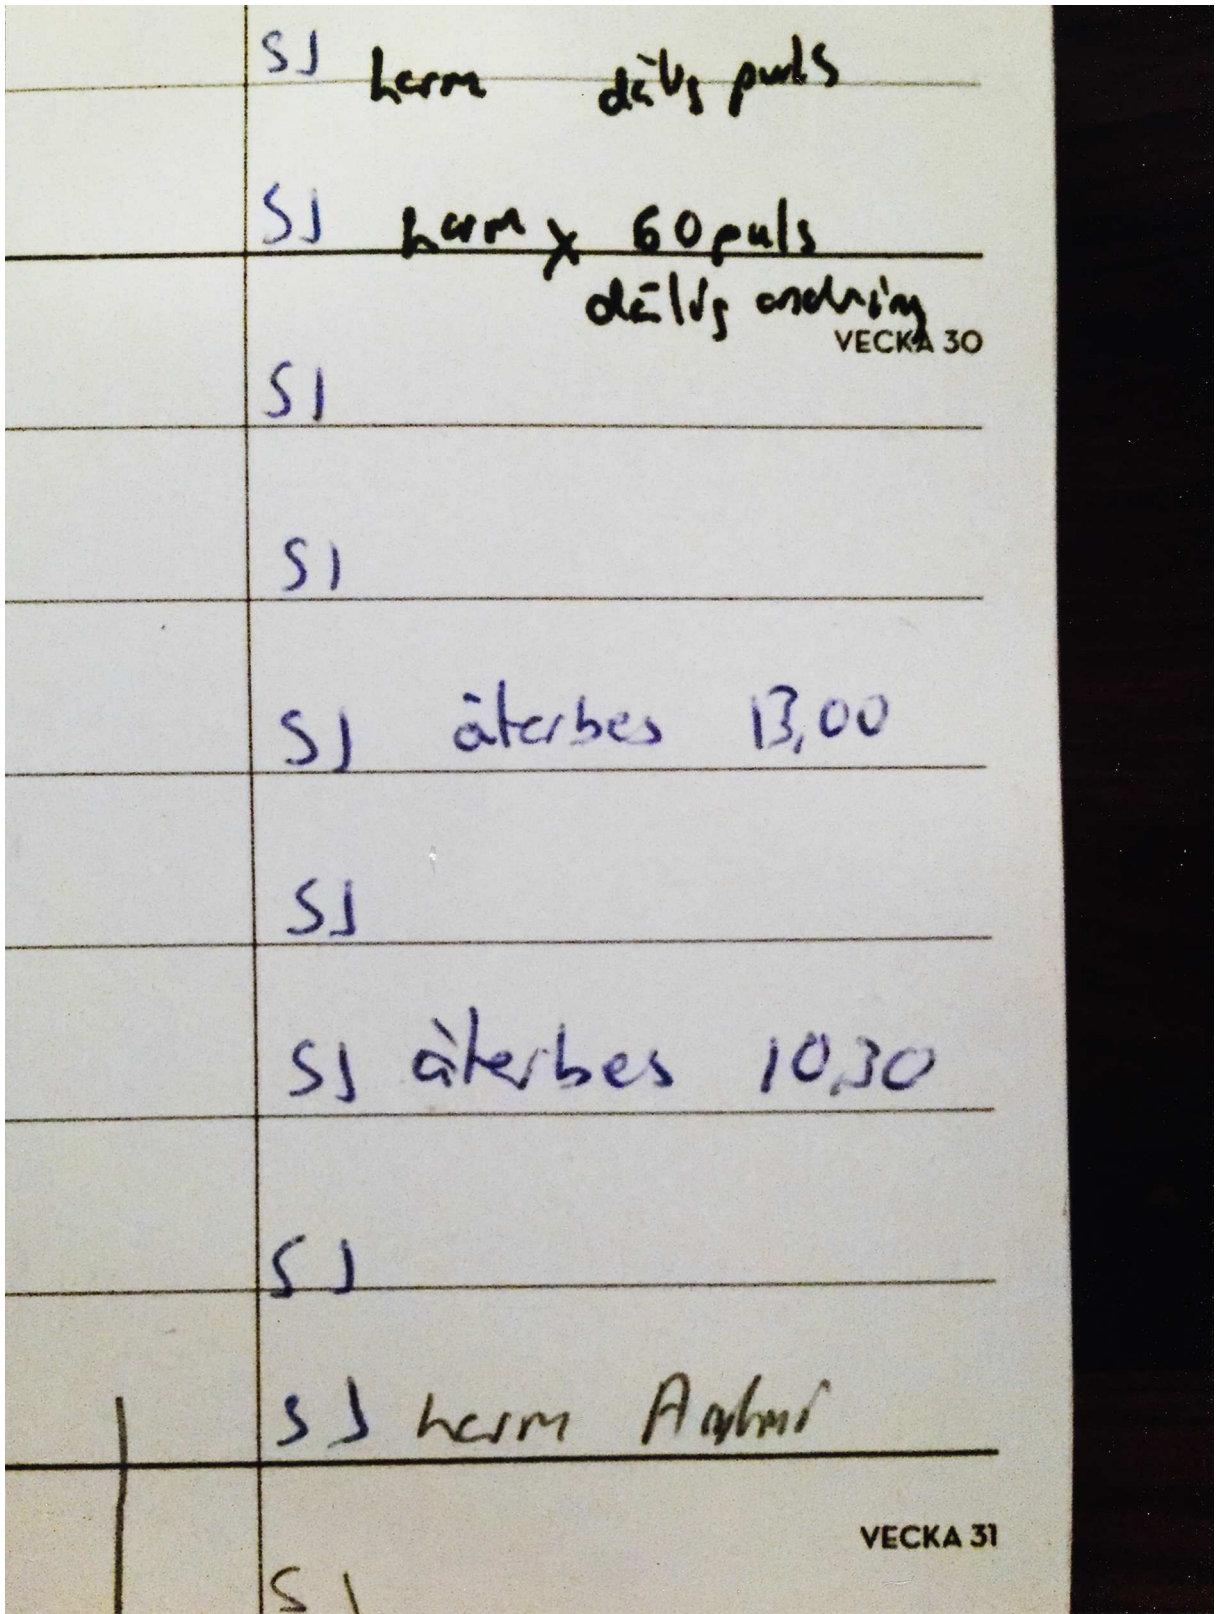 SJ herm dålig puls
SJ herm x 60 puls
dålig andning
VECKA 30
SJ
SJ
SJ återbes 13,00
SJ
SJ återbes 10,30
SJ
SJ herm
VECKA 31
SJ